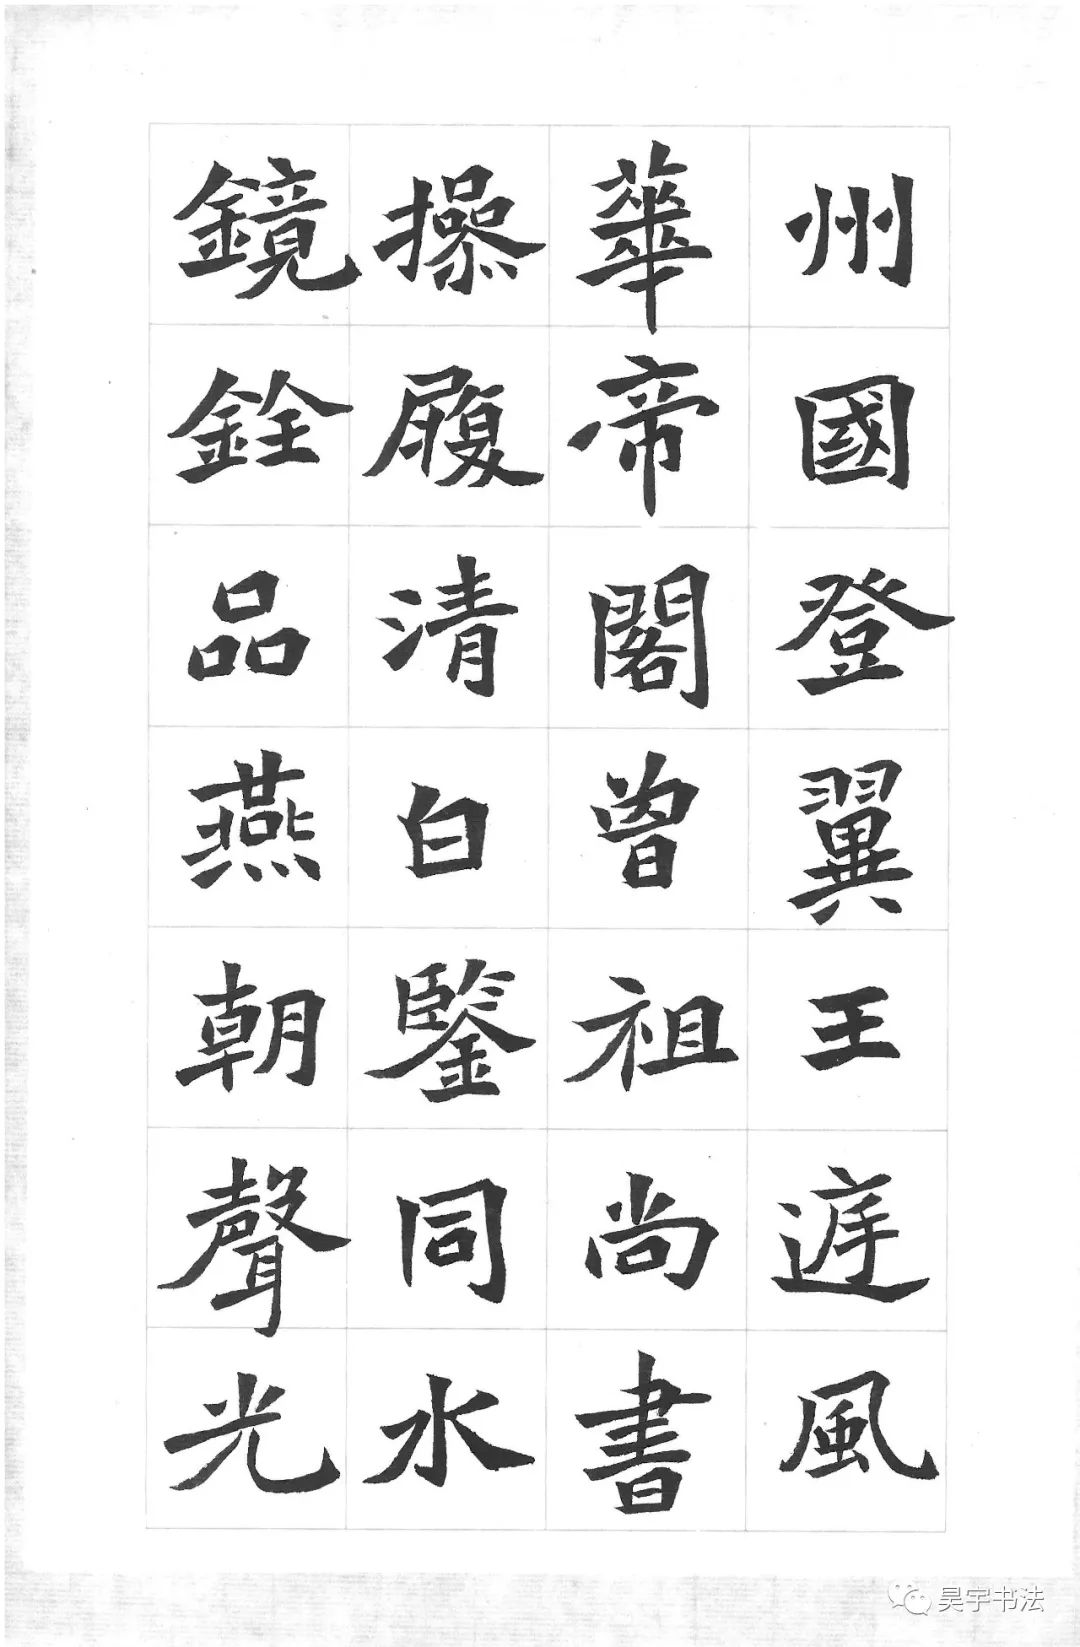 州國登翼王遲風
華帝閣曾祖尚書
操履清白鑒同水
鏡銓品燕朝聲光
昊宇书法